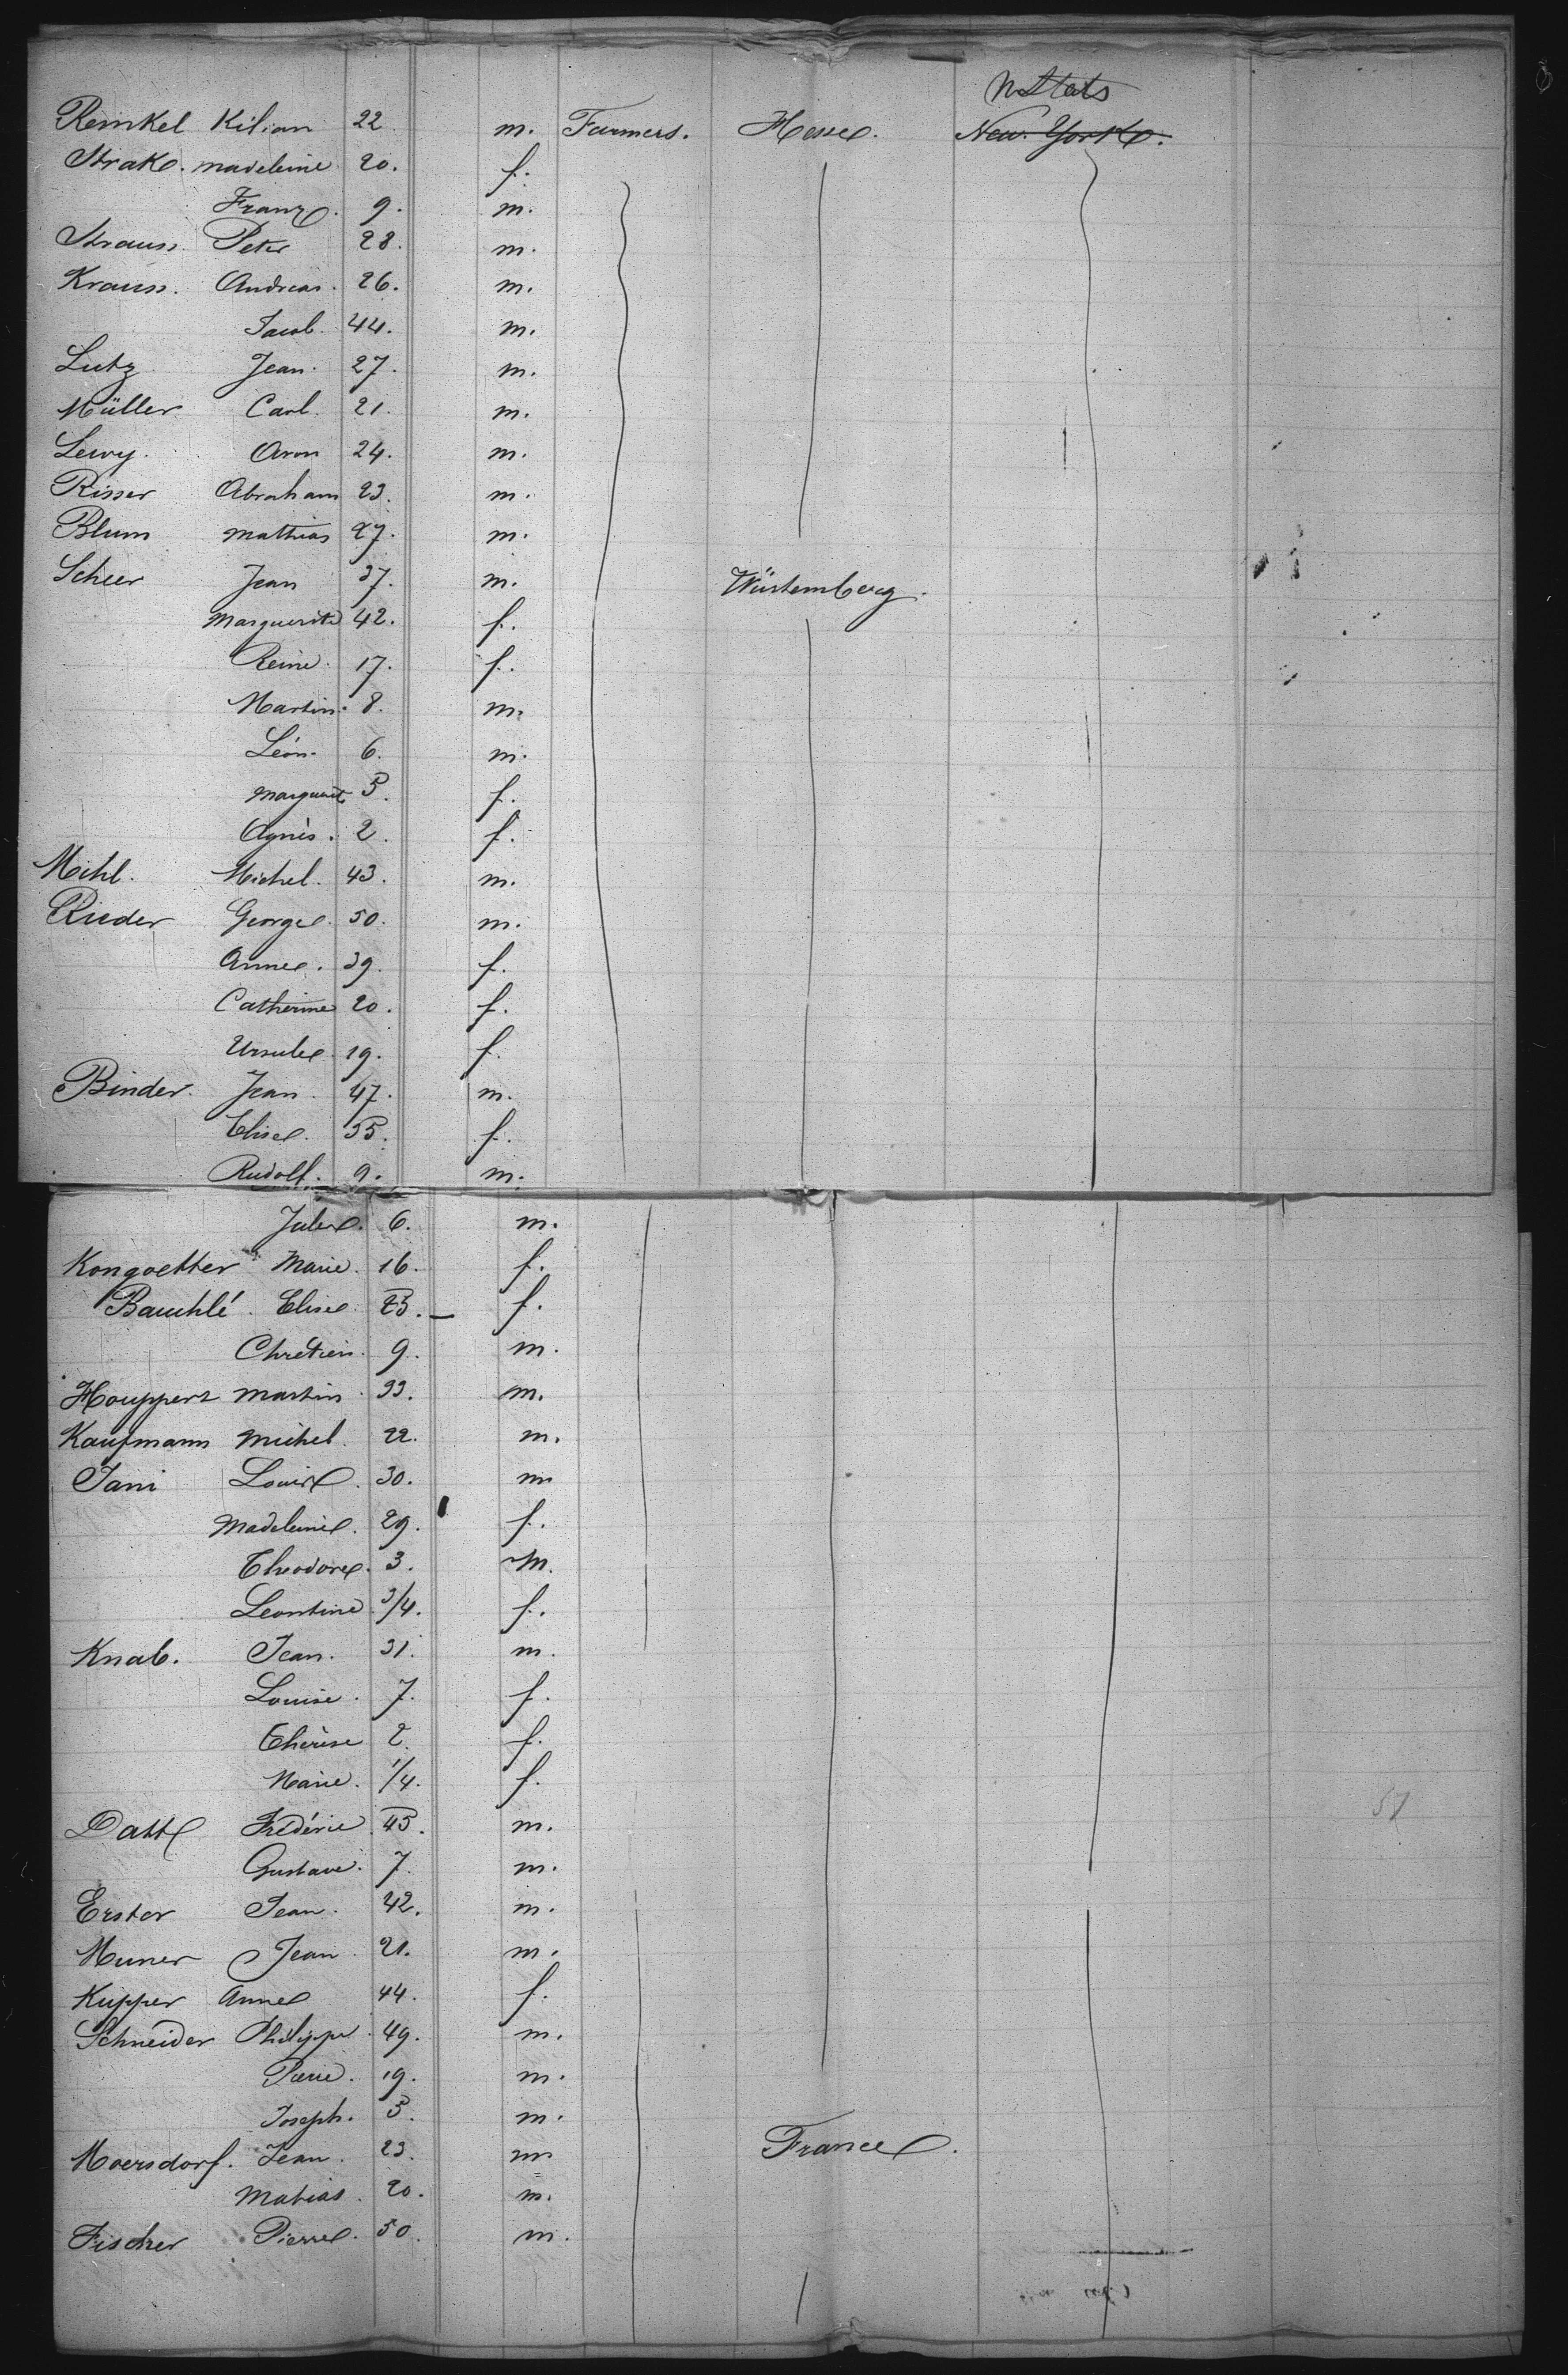 U States
Reinkel Kilian 22 m. Farmers. Hesse. New York.
Strake. Madeleine 20. f.
Franz. 9. m.
Strauss. Peter 28. m.
Krauss. Andreas. 26. m.
Jacob. 44. m.
Lutz Jean. 27. m.
Müller Carl. 21. m.
Lewy. Aron 24. m.
Risser Abraham 23. m.
Blum Mathias 27. m.
Scheer Jean 37. m. Würtemberg.
Marguerite 42. f.
Reine. 17. f.
Martin. 8. m.
Léon. 6. m.
Marguerite 5. f.
Agnès. 2. f.
Mihl. Michel. 43. m.
Rieder George. 50. m.
Anne. 39. f.
Catherine 20. f.
Ursule. 19. f.
Binder. Jean. 47. m.
Elise. 35. f.
Rudolf. 9. m.
Jules. 6. m.
Kongoetter Marie. 16. f.
Bauchlé. Elise. 23. f.
Chretien. 9. m.
Houppert Martin. 33. m.
Kaufmann Michel. 22. m.
Jani Louis. 30. m
Madeleine. 29. f.
Theodore. 3. m.
Leontine 3/4. f.
Knab. Jean. 31. m.
Louise. 7. f.
Thérèse 2. f.
Marie. 1/4. f.
Datt Frédéric 45. m.
Gustave. 7. m.
Erster Jean. 42. m.
Muner Jean. 21. m.
Kupper Anne 44. f.
Schneider Philippe. 49. m.
Pierre. 19. m.
Joseph. 5. m.
Moersdorf. Jean. 23. m France.
Matias. 20. m.
Fischer Pierre. 50. m.